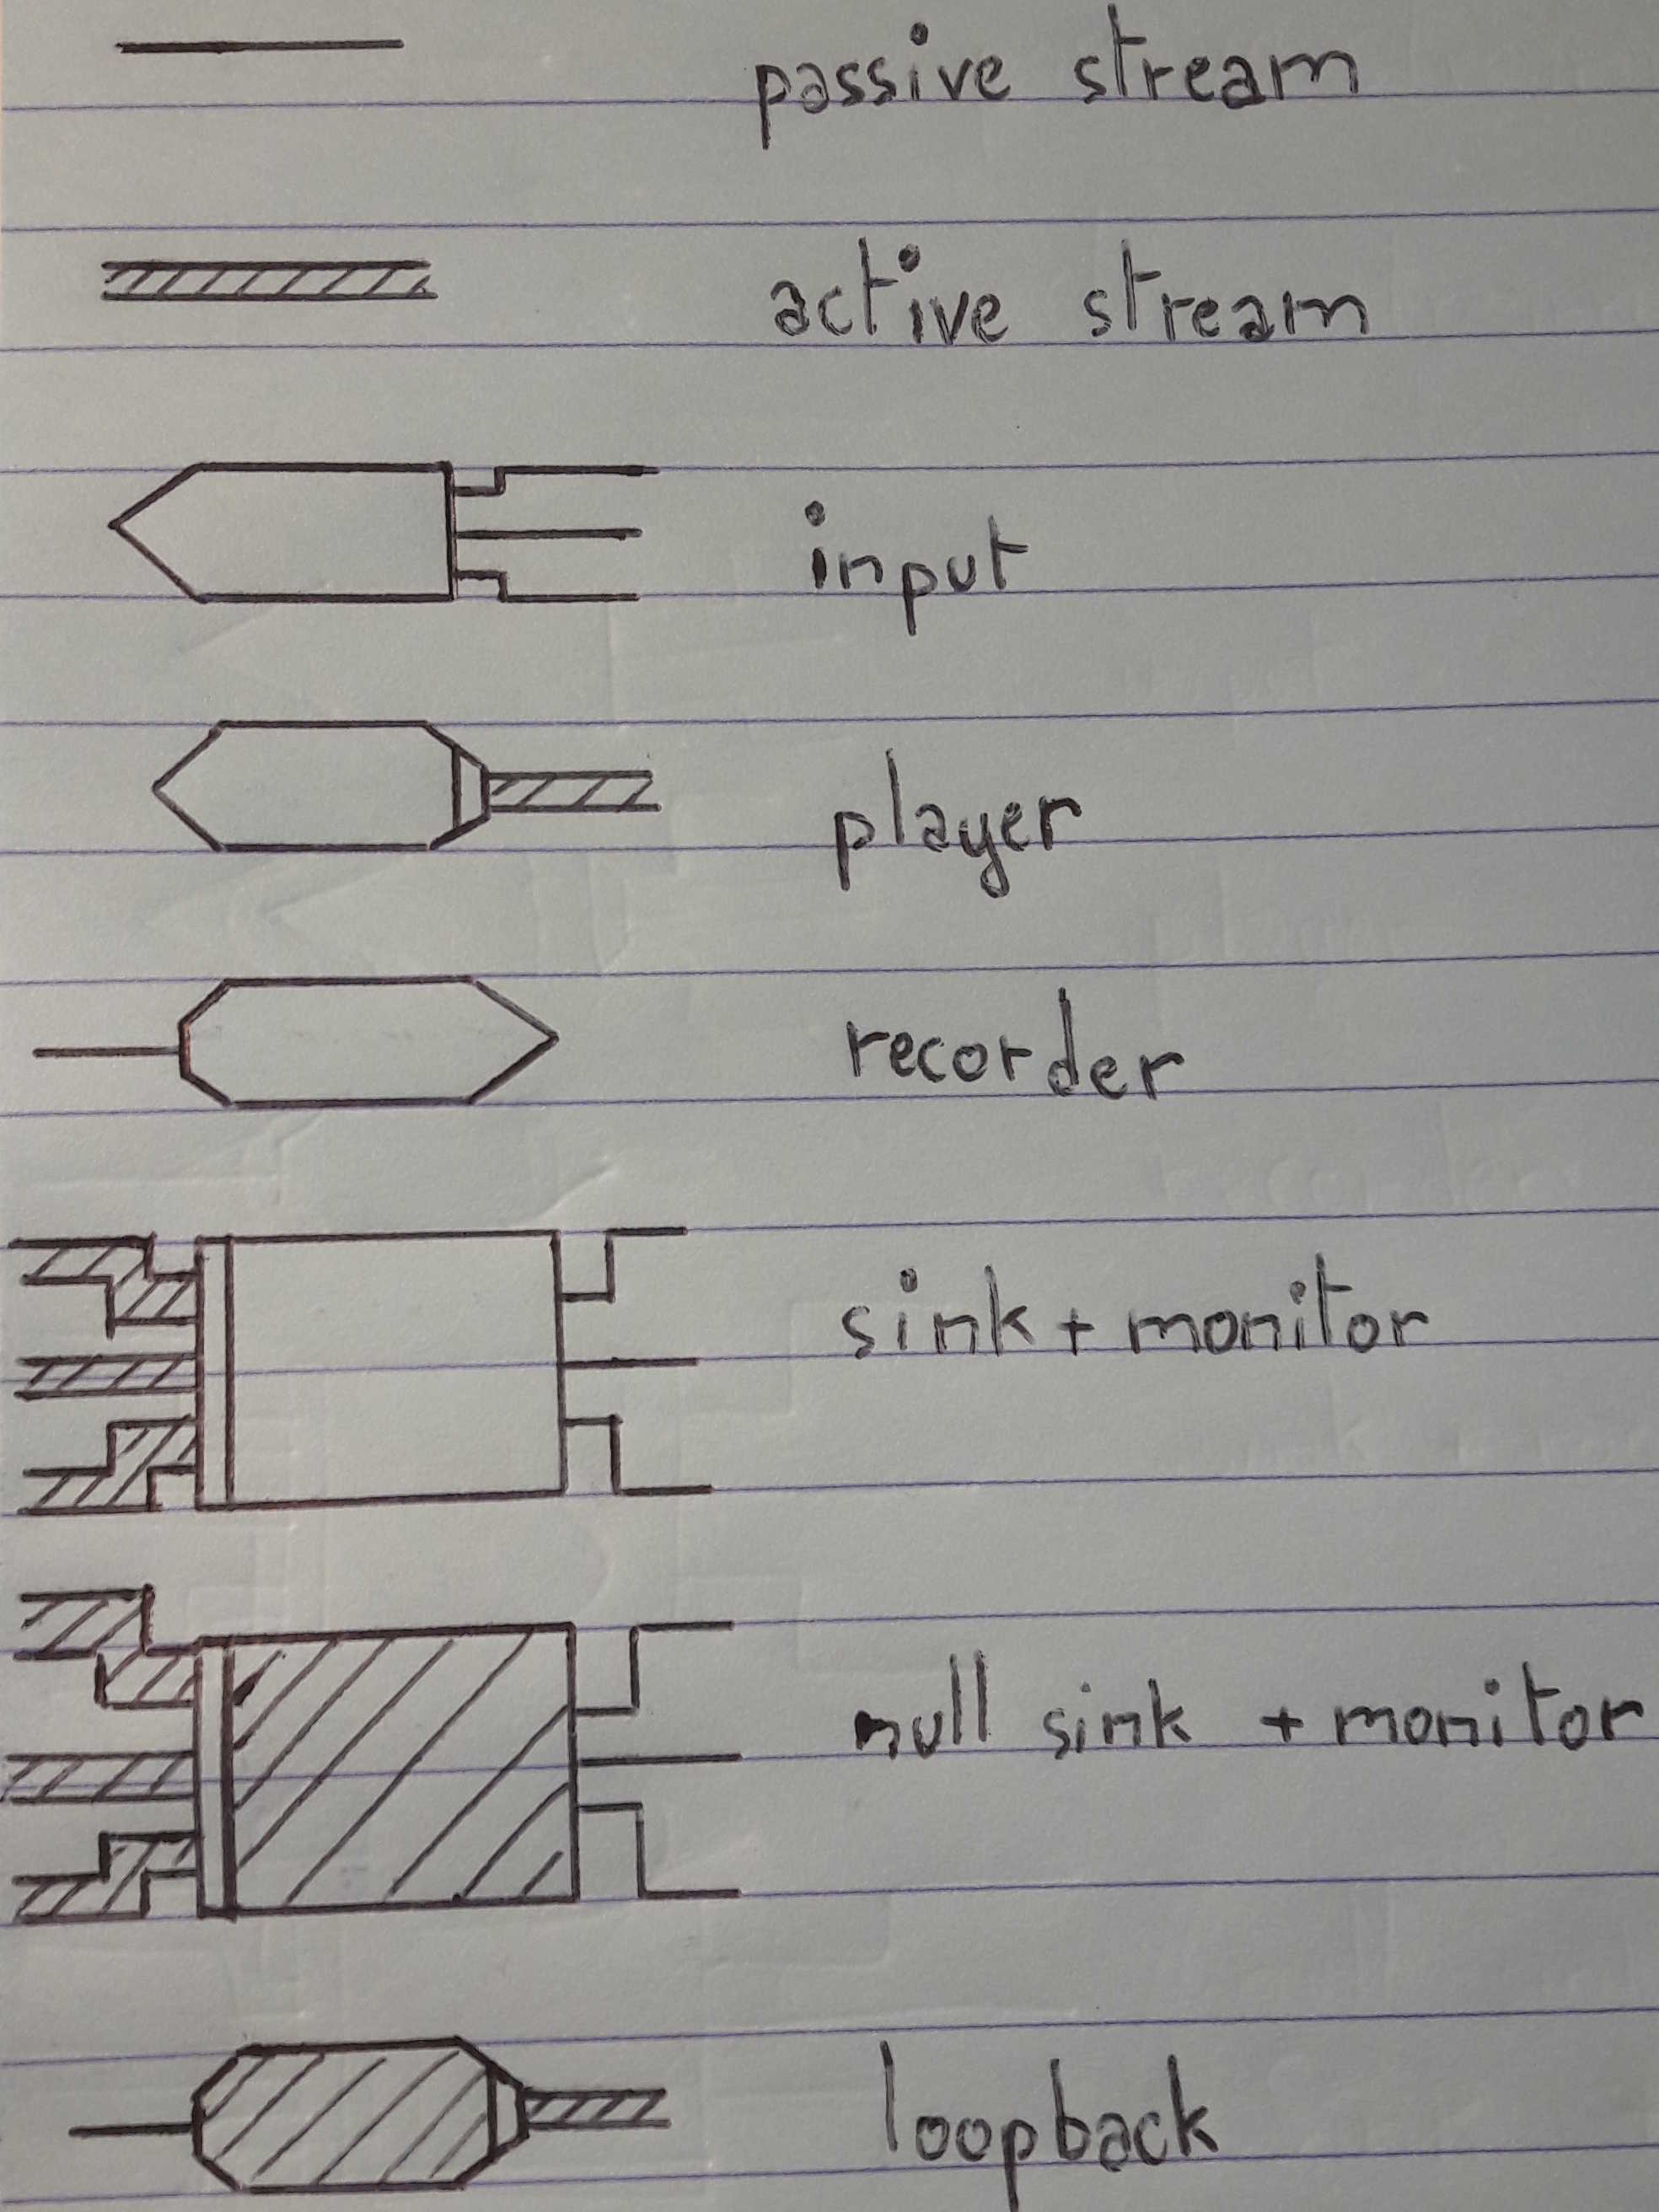 passive stream
active stream
input
player
recorder
sink + monitor
null sink + monitor
loopback